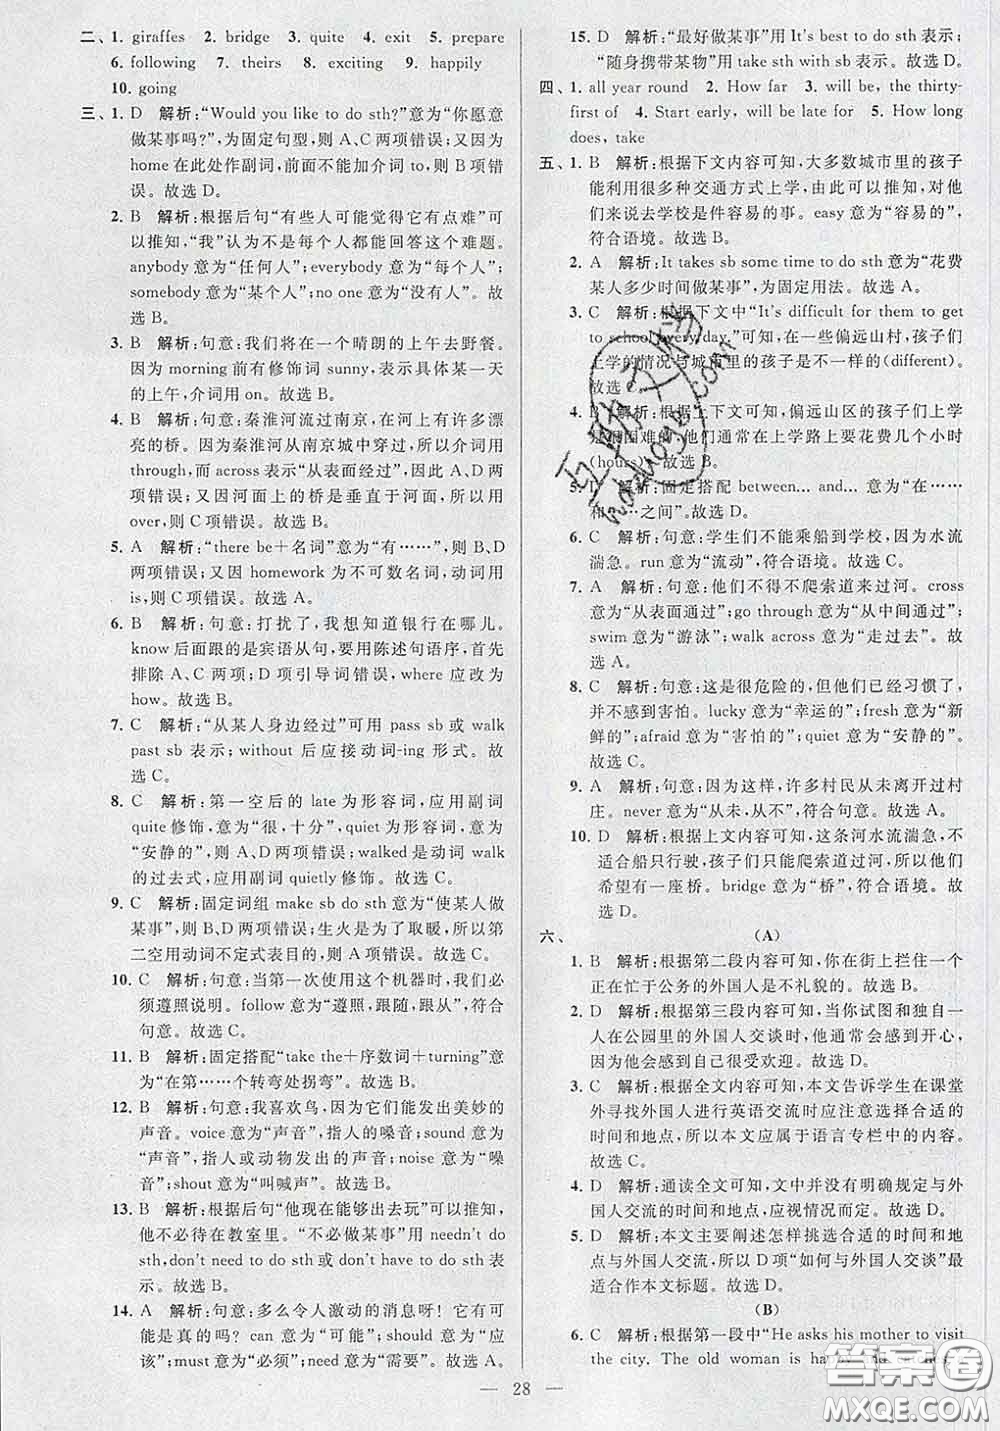 二、1. giraffes 2. bridge 3. quite 4. exit 5. prepare
6. following 7. theirs 8. exciting 9. happily
10. going
三、1. D 解析:“Would you like to do sth?”意为“你愿意
做某事吗?”,为固定句型,则 A、C 两项错误;又因为
home在此处作副词,前面不能加介词 to,则 B 项错
误。故选 D。
2. B 解析:根据后句“有些人可能觉得它有点难”可
以推知,“我”认为不是每个人都能回答这个难题。
anybody 意为“任何人”;everybody 意为“每个人”;
somebody 意为“某个人”;no one 意为“没有人”。故
选 B。
3. B 解析:句意:我们将在一个晴朗的上午去野餐。
因为 morning 前有修饰词 sunny,表示具体某一天
的上午,介词用 on。故选 B。
4. B 解析:句意:秦淮河流过南京,在河上有许多漂
亮的桥。因为秦淮河从南京城中穿过,所以用
through,而 across 表示“从表面经过”,故 A、D 两项
错误;又因为河面上的桥是垂直于河面的,所以用
over,则 C 项错误。故选 B。
5. A 解析:“there be+名词”意为“有……”,则 B、D
两项错误;又因 homework 为不可数名词,动词用
is,则 C 项错误。故选 A。
6. B 解析:句意:打扰了,我想知道银行在哪儿。
know后面跟的是宾语从句,要用陈述句语序,首先
排除 A、C 两项;D 项引导词错误,where 应改为
how。故选 B。
7. C 解析:“从某人身边经过”可用 pass sb 或 walk
past sb 表示;without 后应接动词-ing 形式。故
选 C。
8. C 解析:第一空后的 late 为形容词,应用副词
quite 修饰,意为“很,十分”,quiet 为形容词,意为
“安静的”,则 A、D两项错误;walked是动词 walk
的过去式,应用副词 quietly 修饰。故选 C。
9. C 解析:固定词组 make sb do sth 意为“使某人做
某事”,则 B、D两项错误;生火是为了取暖,所以第
二空用动词不定式表目的,则 A 项错误。故选 C。
10. C 解析:句意:当第一次使用这个机器时,我们必
须遵照说明。follow 意为“遵照,跟随,跟从”,符合
句意。故选 C。
11. B 解析:固定搭配“take the+序数词+turning”意
为“在第……个转弯处拐弯”。故选 B。
12. B 解析:句意:我喜欢鸟,因为它们能发出美妙的
声音。voice 意为“声音”,指人的嗓音;sound 意为
“声音”,指人或动物发出的声音;noise 意为“噪
音”;shout 意为“叫喊声”。故选 B。
13. B 解析:根据后句“他现在能够出去玩”可以推知,
他不必待在教室里。“不必做某事”用 needn't do
sth,don't need to do sth或 don't have to do sth表
示。故选 B。
14. A 解析:句意:多么令人激动的消息呀! 它有可
能是真的吗? can 意为“可能”;should 意为“应
该”;must 意为“必须”;need 意为“需要”。故选 A。
15. D 解析:“最好做某事”用 It's best to do sth 表示;
“随身携带某物”用 take sth with sb 表示。故选 D。
四、1. all year round 2. How far 3. will be, the thirty-
first of 4. Start early, will be late for 5. How long
does, take
五、1. B 解析:根据下文内容可知,大多数城市里的孩子
能利用很多种交通方式上学,由此可以推知,城市里
的孩子去学校是件容易的事。easy 意为“容易的”,
符合语境。故选 B。
2. A 解析:It takes sb some time to do sth意为“花费
某人多少时间做某事”,为固定用法。故选 A。
3. C 解析:根据下文中“It's difficult for them to get
to school every day.”可知,在一些偏远山村,孩子们
上学的情况与城市里的孩子是不一样的(different)。
故选 C。
4. B 解析:根据上下文可知,偏远山区的孩子们上学
是困难的,他们通常在上学路上要花费几个小时
(hours)。故选 B。
5. D 解析:固定搭配 between... and... 意为“在……
和……之间”。故选 D。
6. C 解析:句意:学生们不能乘船到学校,因为水流
湍急。run 意为“流动”,符合语境。故选 C。
7. A 解析:句意:他们不得不爬索道来过河。cross
意为“从表面通过”;go through 意为“从中间通过”;
swim 意为“游泳”;walk across 意为“走过去”。故
选 A。
8. C 解析:句意:这是很危险的,但他们已经习惯了,
并不感到害怕。lucky 意为“幸运的”;fresh 意为“新
鲜的”;afraid 意为“害怕的”;quiet 意为“安静的”。
故选 C。
9. A 解析:句意:因为这样,许多村民从未离开过村
庄。never 意为“从未,从不”,符合句意。故选 A。
10. D 解析:根据上文内容可知,这条河水流湍急,不
适合船只行驶,孩子们只能爬索道过河,所以他们
希望有一座桥。bridge 意为“桥”,符合语境。故
选 D。
六、 (A)
1. B 解析:根据第二段内容可知,你在街上拦住一个
正在忙于公务的外国人是不礼貌的。故选 B。
2. D 解析:根据第三段内容可知,当你试图和独自一
人在公园里的外国人交谈时,他通常会感到开心,
因为他会感到自己很受欢迎。故选 D。
3. C 解析:根据全文内容可知,本文告诉学生在课堂
外寻找外国人进行英语交流时应注意选择合适的
时间和地点,所以本文应属于语言专栏中的内容。
故选 C。
4. D 解析:通读全文可知,文中并没有明确规定与外
国人交流的时间和地点,应视情况而定。故选 D。
5. D 解析:本文主要阐述怎样挑选合适的时间和地
点与外国人交流,所以 D 项“如何与外国人交谈”最
适合作本文标题。故选 D。
(B)
6. C 解析:根据第一段中“He asks his mother to visit
the city. The old woman is happy and catches
— 28 —
答案圈
MXQE.COM